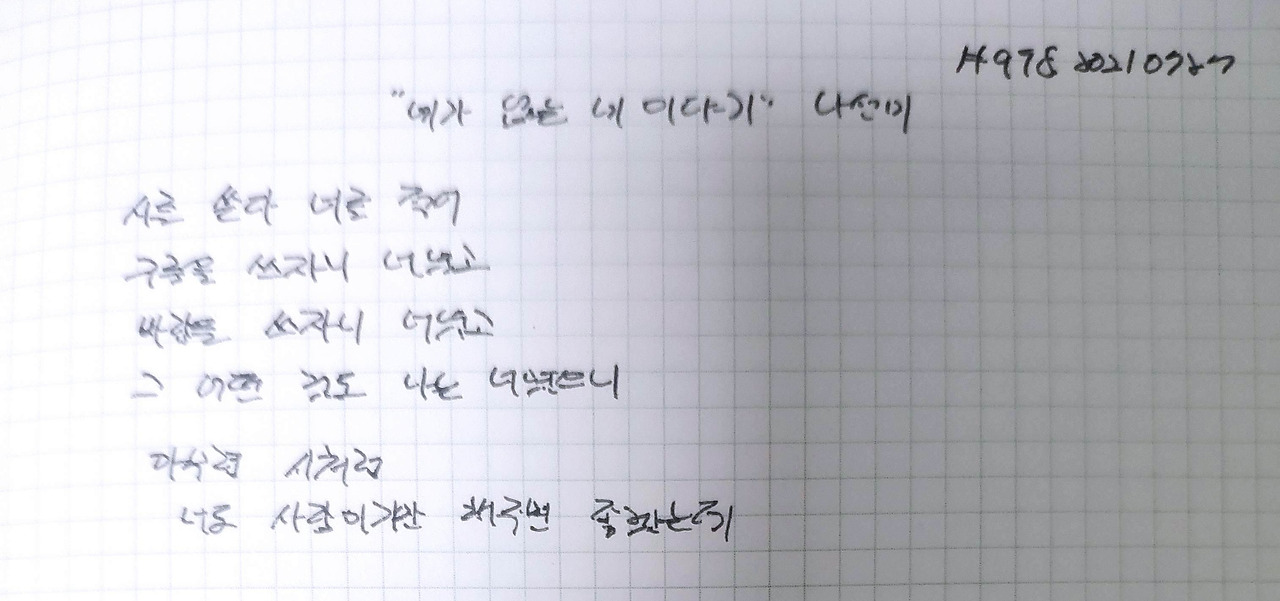 #978 20210727
"네가 없는 내 이야기" 나선미
시를 쓴다 너를 적어
구름을 쓰자니 너였고
바람을 쓰자니 너였고
그 어떤 것도 나는 너였으니
아무렴 시처럼
너도 사람이기만 해주면